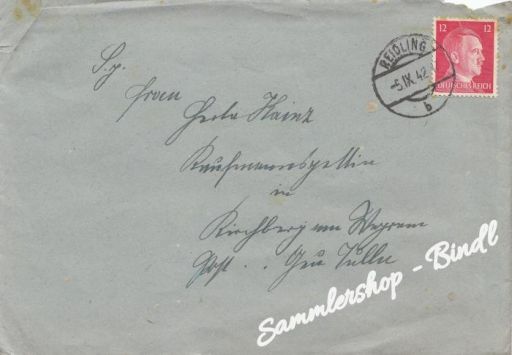 12 12
DEUTSCHES REICH
REIDLING
-5.IX.42
b
S.g.
Frau
Herta Hainz
Kaufmannsgattin
in
Kirchberg am Wagram
Post . . Gau Tulln
Sammlershop - Bindl